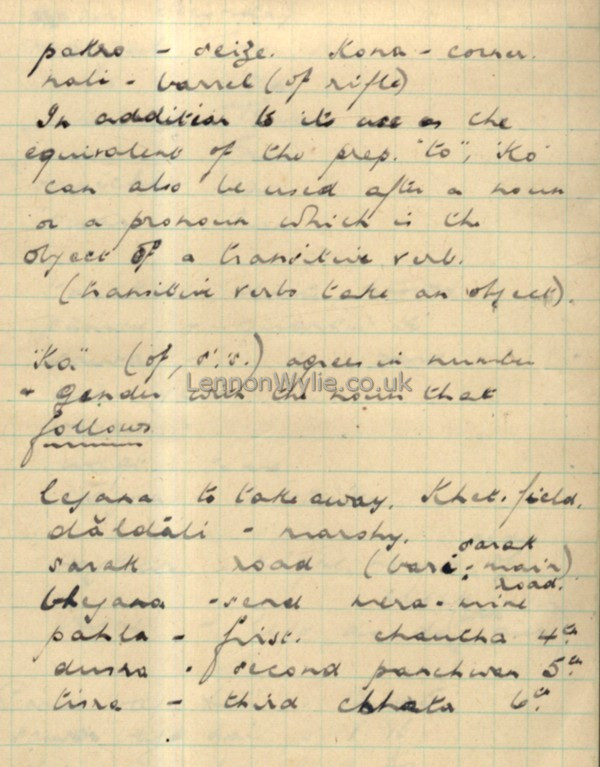 pakro - seize. Kona - corner.
nali - barrel (of rifle)
In addition to its use as the
equivalent of the prep. "to", 'Ko'
can also be used after a noun
or a pronoun which is the
object of a transitive verb.
(transitive verbs take an object).
"Ka" (of, s's.) agrees in number
+ gender with the noun that
LennonWylie.co.uk
follows
lejana to take away. Khet. field.
dăldăli - marshy.
sarak road (bari sarak - main road.)
bhejana - send mera - mine
pahla - first. chautha 4th
dusra - second panchwan 5th
tisra - third chhata 6th